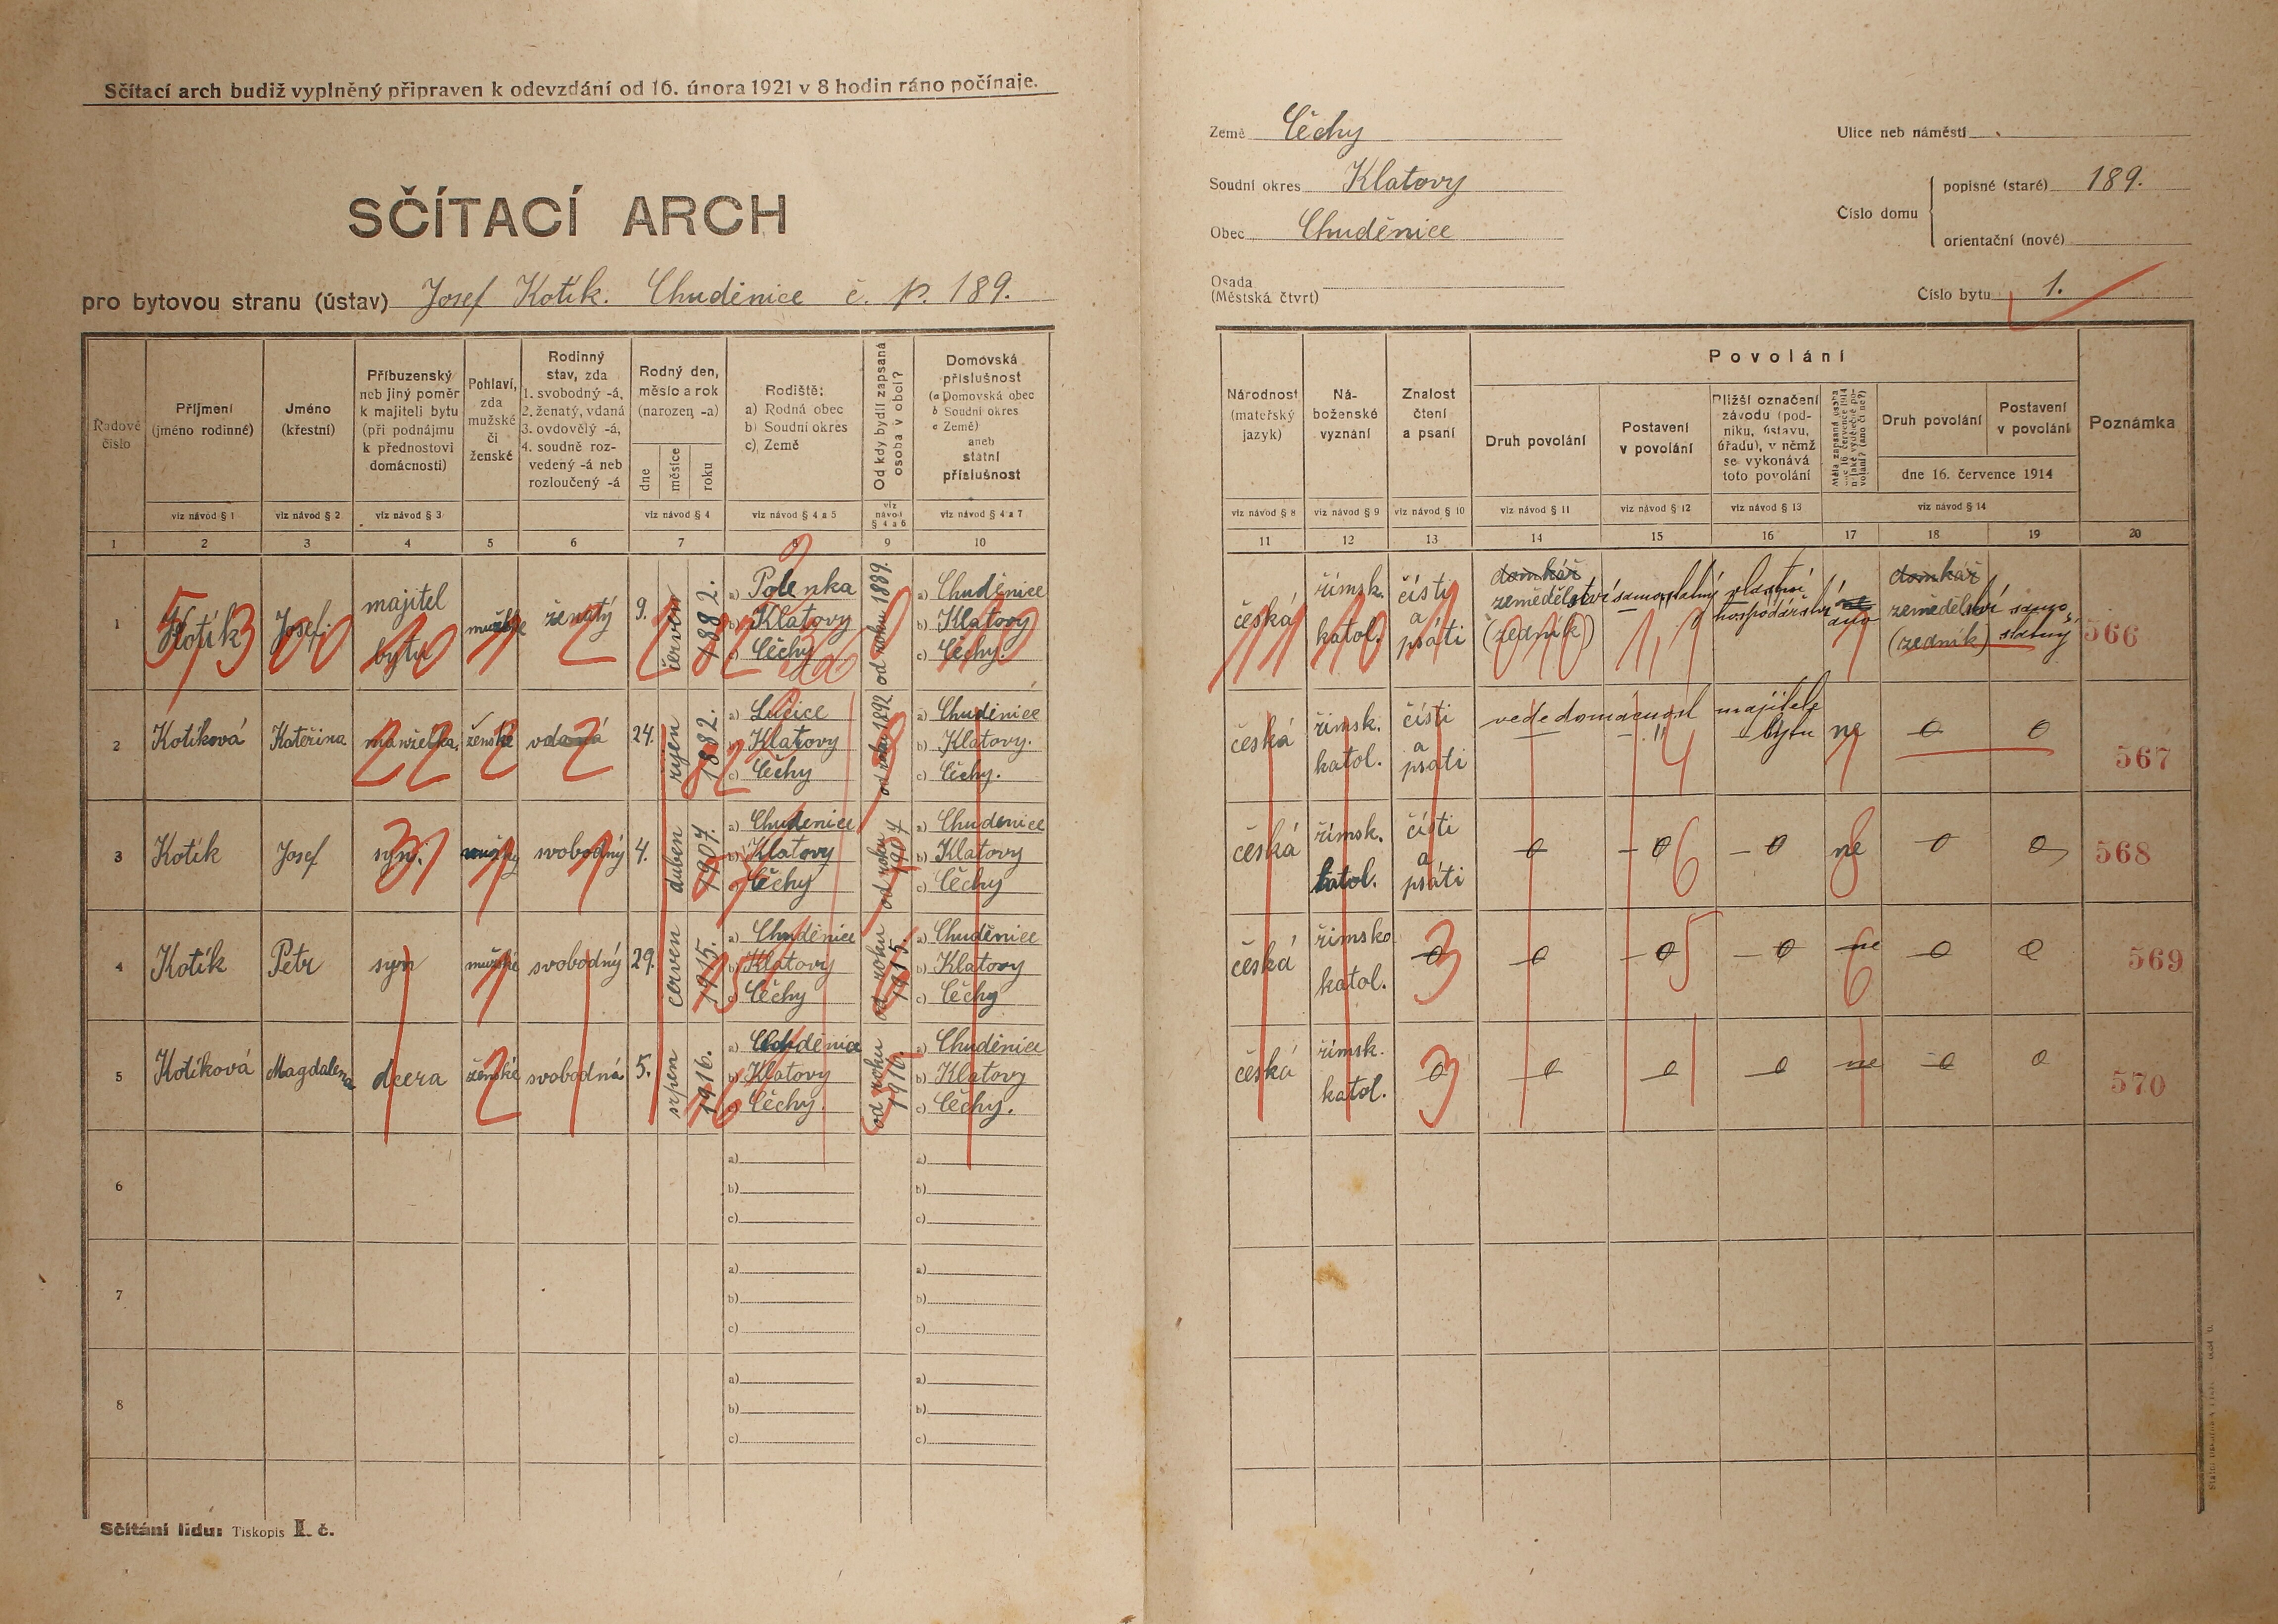 Sčítací arch budiž vyplněný připraven k odevzdání od 16. února 1921 v 8 hodin ráno počínaje.
SČÍTACÍ ARCH
pro bytovou stranu (ústav) Josef Kotík. Chuděnice č. p. 189.
Země Čechy
Soudní okres Klatovy
Obec Chuděnice
Osada
(Městská čtvrť)
Ulice neb náměstí
Číslo domu
popisné (staré) 189.
orientační (nové)
Číslo bytu 1.
Řadové číslo
Příjmení (jméno rodinné)
Jméno (křestní)
Příbuzenský neb jiný poměr k majiteli bytu (při podnájmu k přednostovi domácnosti)
Pohlaví, zda mužské či ženské
Rodinný stav, zda 1. svobodný -á, 2. ženatý, vdaná 3. ovdovělý -á, 4. soudně rozvedený -á neb rozloučený -á
Rodný den, měsíc a rok (narozen -a)
dne měsíce roku
Rodiště: a) Rodná obec b) Soudní okres c) Země
Od kdy bydlí zapsaná osoba v obci?
Domovská příslušnost (a Domovská obec b Soudní okres c Země) aneb statní příslušnost
viz návod § 1 viz návod § 2 viz návod § 3 viz návod § 4 viz návod § 4 a 5 viz návod § 4 a 6 viz návod § 4 a 7
1 2 3 4 5 6 7 8 9 10
Národnost (mateřský jazyk)
Náboženské vyznání
Znalost čtení a psaní
Povolání
Druh povolání
Postavení v povolání
Bližší označení závodu (podniku, ústavu, úřadu), v němž se vykonává toto povolání
Druh povolání
Postavení v povolání
dne 16. července 1914
Poznámka
viz návod § 8 viz návod § 9 viz návod § 10 viz návod § 11 viz návod § 12 viz návod § 13 viz návod § 14
11 12 13 14 15 16 17 18 19 20
1 Kotík Josef. majitel bytu mužské ženatý 9. červen 1882. a) Polenka b) Klatovy c) Čechy od roku 1889. a) Chuděnice b) Klatovy c) Čechy.
česká římsk. katol. čísti a psáti domkář zemědělství (zedník) samostatný vlastní hospodářství ne ano domkář zemědělství (zedník) samostatný 566
2 Kotíková Kateřina manželka, ženské vdaná 24. říjen 1882. a) Lučice b) Klatovy c) Čechy od roku 1892 a) Chuděnice b) Klatovy. c) Čechy.
česká římsk. katol. čísti a psáti vede domácnost majitele bytu ne 0 0 567
3 Kotík Josef syn. mužský svobodný 4. duben 1907. a) Chudenice b) Klatovy c) Čechy od roku 1907 a) Chudenice b) Klatovy c) Čechy
česká římsk. katol. čísti a psáti 0 0 0 ne 0 0 568
4 Kotík Petr syn mužské svobodný 29. červen 1915. a) Chuděnice b) Klatovy c) Čechy od roku 1915. a) Chuděnice b) Klatovy c) Čechy
česká římsko katol. 0 0 0 0 ne 0 0 569
5 Kotíková Magdalena dcera ženské svobodná 5. srpen 1916. a) Chuděnice b) Klatovy c) Čechy. od roku 1916. a) Chuděnice b) Klatovy c) Čechy.
česká římsk. katol. 0 0 0 0 ne 0 0 570
6 a) b) c) a) b) c)
7 a) b) c) a) b) c)
8 a) b) c) a) b) c)
Sčítání lidu: Tiskopis I. č.